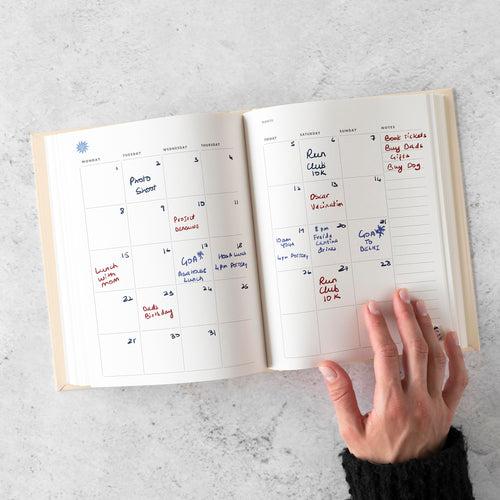 MONDAY TUESDAY WEDNESDAY THURSDAY
1 2 3 4
Photo
Shoot
8 9 10 11
Project
Deadline
15 16 17 18
Lunch
with
mom
GOA
Lunch
4pm Pottery
22 23 24 25
Dad's
Birthday
29 30 31
SATURDAY SUNDAY NOTES
5 6 7
Run
Club
10K
Book Tickets
Buy Dad's
Gifts
Buy Dog
12 13 14
Oscar
Vaccination
19 20 21
10am
Yoga
4pm Pottery
8pm
Frida
Cantina
drinks
GOA
TO
DELHI
26 28
Run
Club
10K